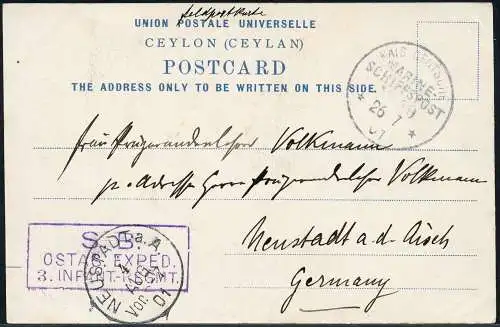 Feldpostkarte
UNION POSTALE UNIVERSELLE
CEYLON (CEYLAN)
POSTCARD
THE ADDRESS ONLY TO BE WRITTEN ON THIS SIDE.
KAIS. DEUTSCHE
MARINE-
SCHIFFSPOST
26 7
01
Frau Präparandenlehrer Volkmann
p. Adresse Herrn Präparandenlehrer Volkmann
Neustadt a. d. Aisch
Germany
S. B.
OSTAS. EXPED.
3. INFANT.-REGMT.
NEUSTADT a. A
AUG
Vor.
01